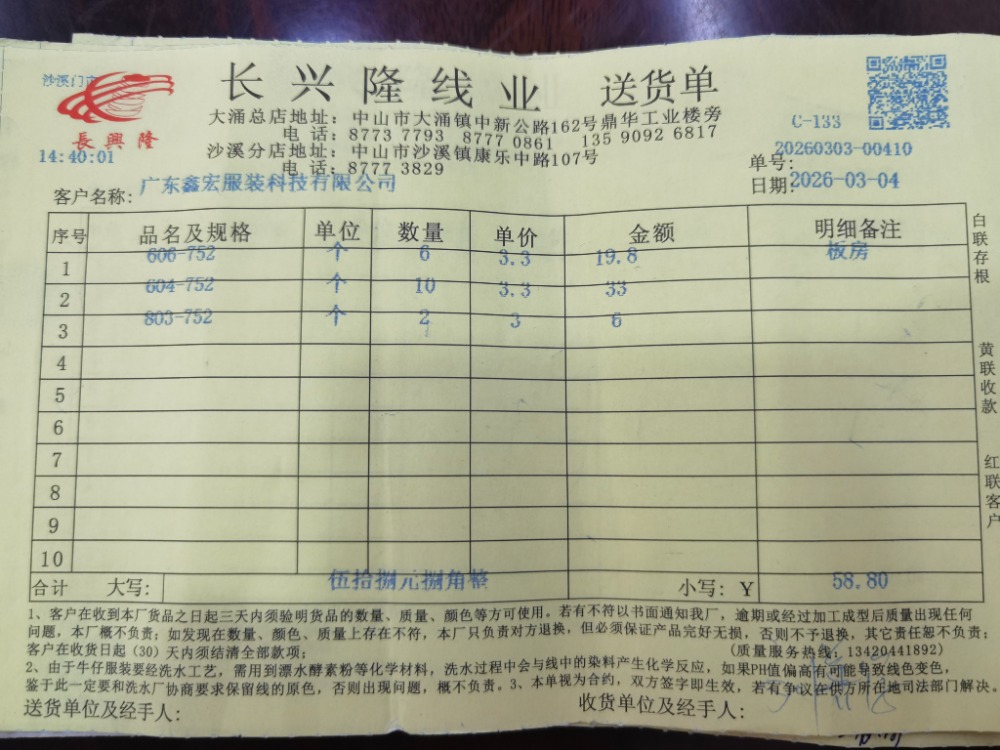 沙溪门市
長興隆
14:40:01
长兴隆线业 送货单
大涌总店地址：中山市大涌镇中新公路162号鼎华工业楼旁
电 话：8773 7793 8777 0861 135 9092 6817
沙溪分店地址：中山市沙溪镇康乐中路107号
电 话：8777 3829
C-133
单号：20260303-00410
日期：2026-03-04
客户名称：广东鑫宏服装科技有限公司
序号 品名及规格 单位 数量 单价 金额 明细备注
1 606-752 个 6 3.3 19.8 板房
2 604-752 个 10 3.3 33
3 803-752 个 2 3 6
4
5
6
7
8
9
10
合计 大写： 伍拾捌元捌角整 小写：¥ 58.80
白联存根
黄联收款
红联客户
1、客户在收到本厂货品之日起三天内须验明货品的数量、质量、颜色等方可使用。若有不符以书面通知我厂，逾期或经过加工成型后质量出现任何
问题，本厂概不负责；如发现在数量、颜色、质量上存在不符，本厂只负责对方退换，但必须保证产品完好无损，否则不予退换，其它责任恕不负责；
客户在收货日起（30）天内须结清全部款项； （质量服务热线：13420441892）
2、由于牛仔服装要经洗水工艺，需用到漂水酵素粉等化学材料，洗水过程中会与线中的染料产生化学反应，如果PH值偏高有可能导致线色变色，
鉴于此一定要和洗水厂协商要求保留线的原色，否则出现问题，概不负责。3、本单视为合约，双方签字即生效，若有争议在供方所在地司法部门解决。
送货单位及经手人： 收货单位及经手人：